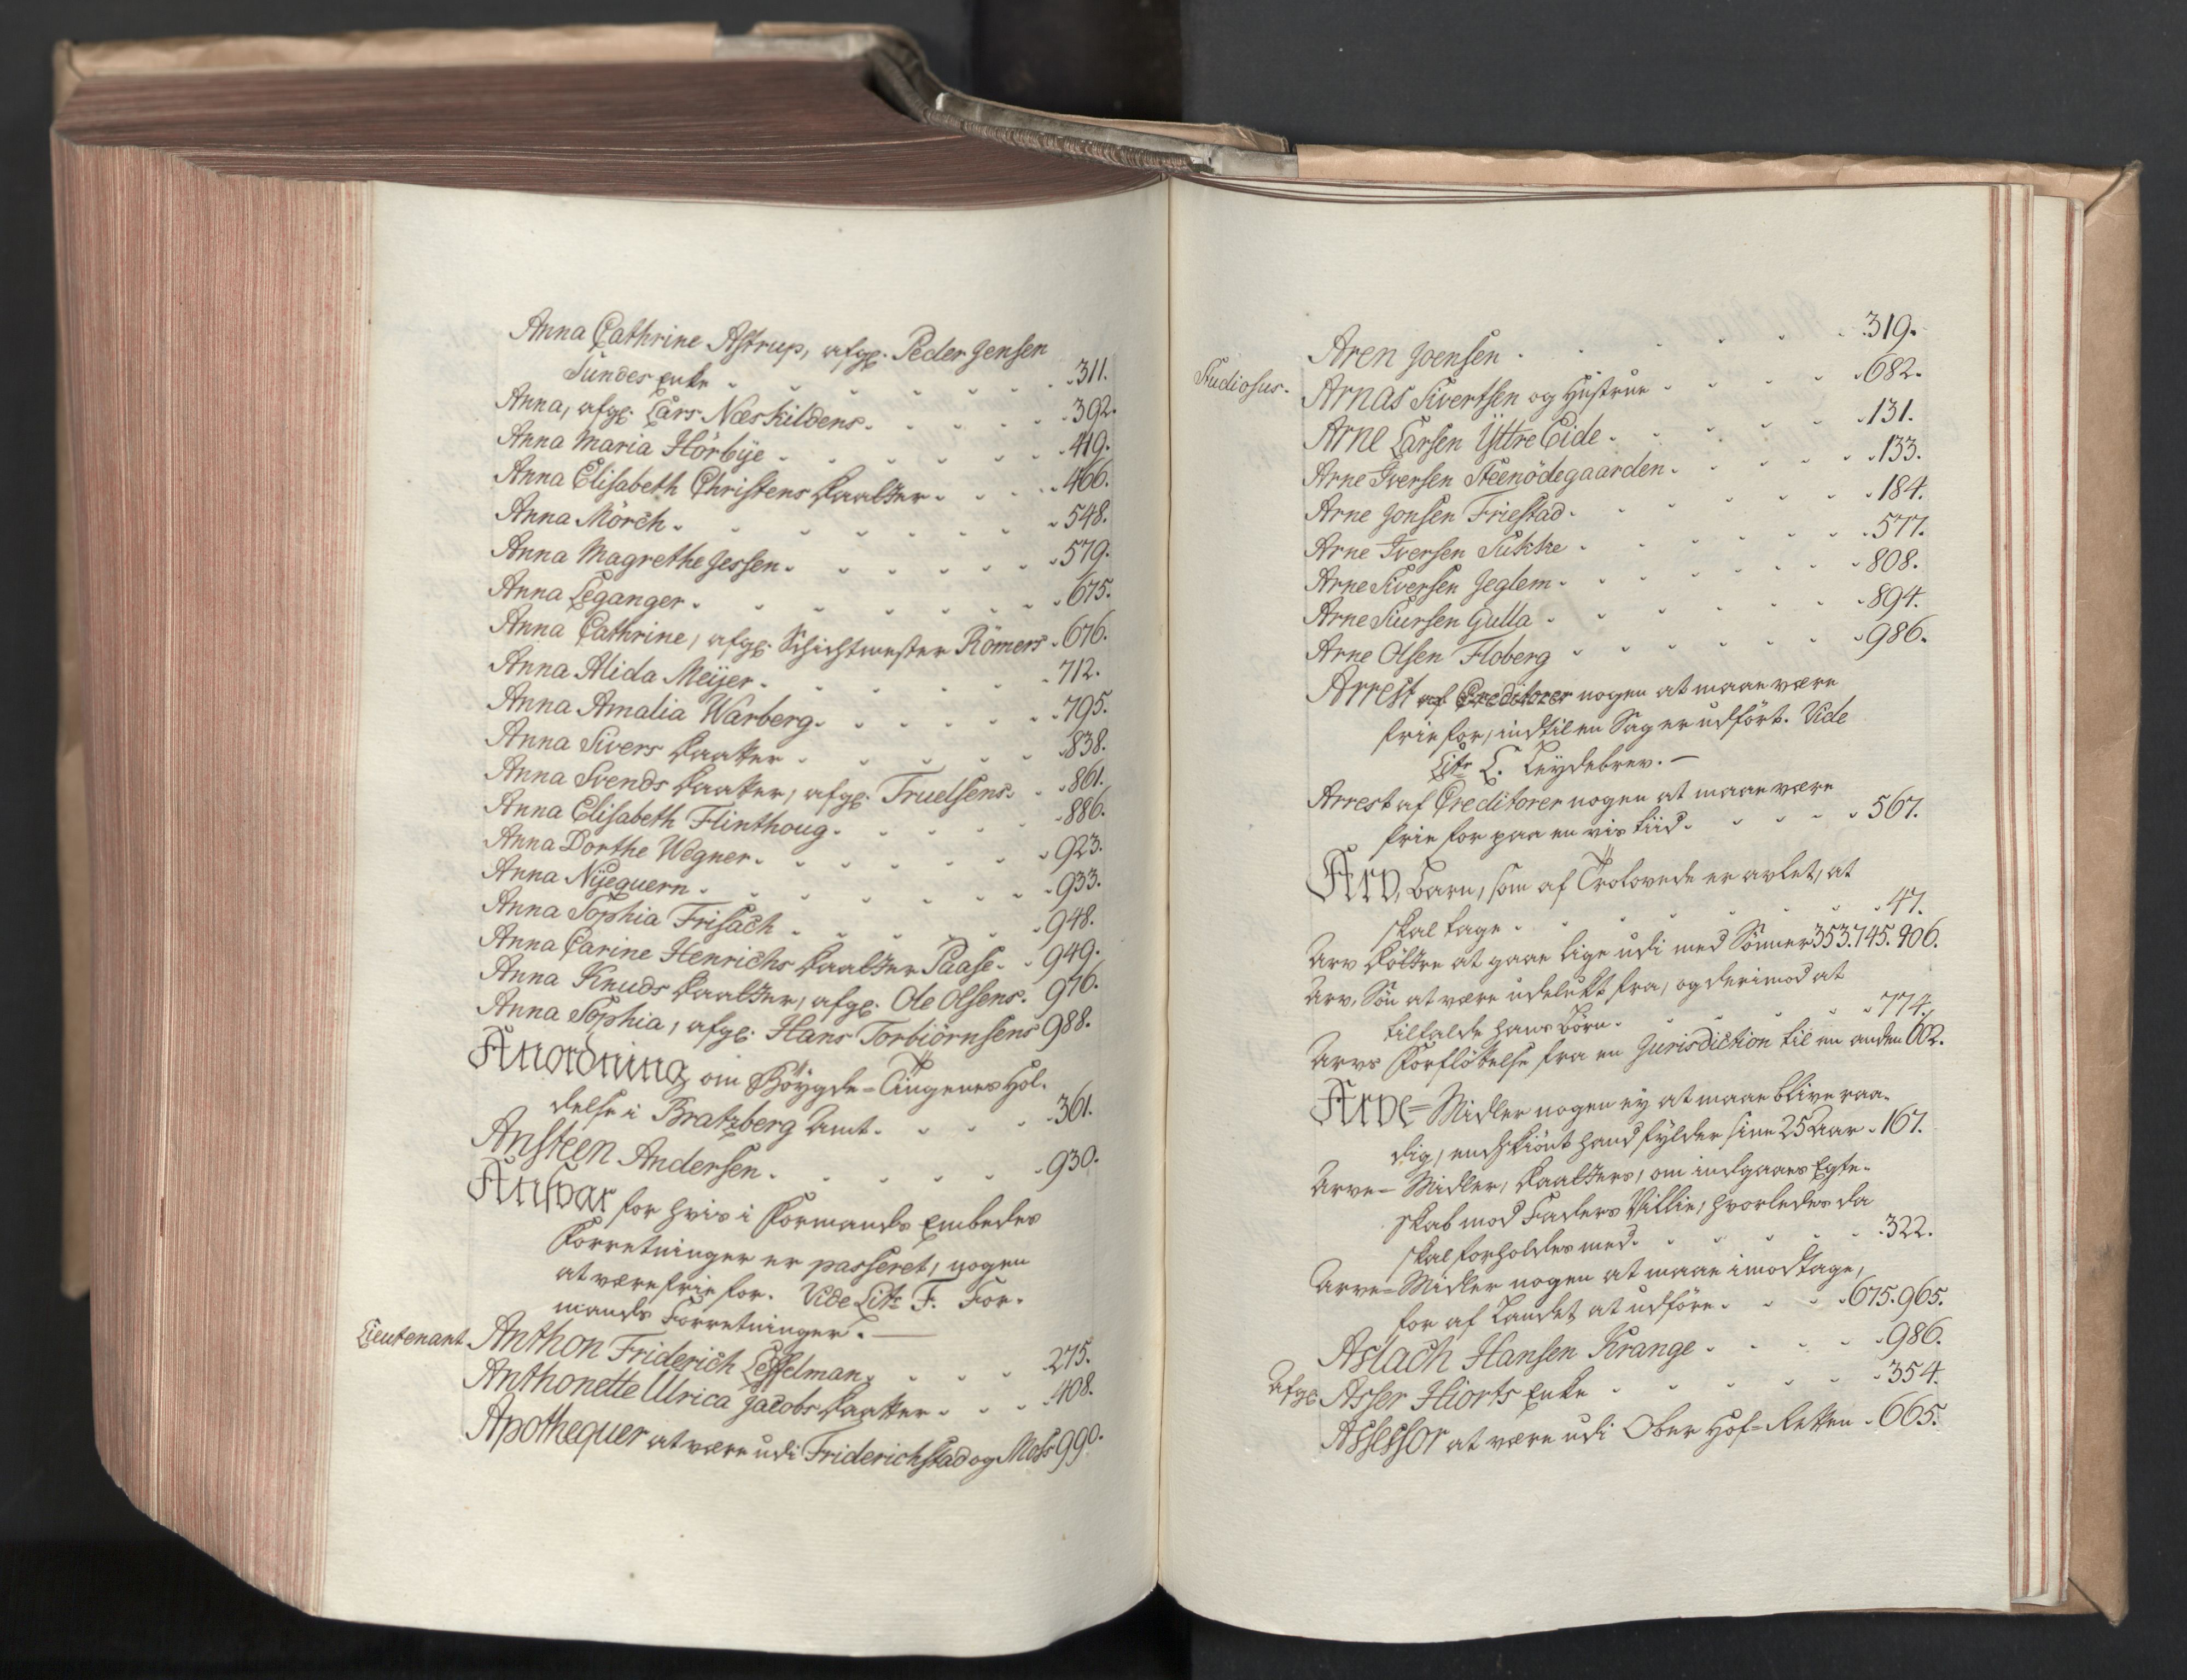 Anna Cathrine Astrup, afgl. Peder Jensen
Sundes Enke - 311.
Anna, afgl. Lars Næskildens - 392.
Anna Maria Hörbÿe - 419.
Anna Elisabeth Christens Daatter - 466.
Anna Mörch - 548.
Anna Magrethe Jessen - 579.
Anna Leganger - 675.
Anna Cathrine, afgl. Schichtmester Römers - 676.
Anna Alida Meÿer - 712.
Anna Amalia Warberg - 795.
Anna Sivers Daatter - 838.
Anna Svends Daatter, afgl. Truelsens - 861.
Anna Elisabeth Flinthoug - 886.
Anna Dorthe Wegner - 923.
Anna Nÿequern - 933.
Anna Sophia Frisach - 948.
Anna Carine Henrichs Daatter Paase - 949.
Anna Knuds Daatter, afgl. Ole Olsens. 976.
Anna Sophia, afgl. Hans Torbiörnsens 988.
Anordning om Böÿgde-Tingenes Hol-
delse i Bratzberg Amt - 361.
Ansteen Andersen - 930.
Ansvar for hvis i Formands Embedes
Forretninger er passeret, nogen
at være frie for. Vide Litr. F. For-
mands Forretninger. —
Lieutenant Anthon Friderich Leffelman - 275.
Anthonette Ulrica Jacobs Daatter - 408.
Apothequer at være udi Friderichstad og Moss 990.
Aren Joensen - 319.
Studiosus. Arnas Sivertsen og Hustrue - 682.
Arne Larsen Ÿttre Eide - 131.
Arne Iversen Steenödegaarden - 133.
Arne Jonsen Friestad - 184.
Arne Iversen Sukke - 577.
Arne Siversen Jeglem - 808.
Arne Siursen Gulla - 894.
Arne Olsen Floberg - 986.
Arrest af Creditorer nogen at maae være
frie for, indtil en Sag er udfört. Vide
Litr. L. Leÿdebrev. —
Arrest af Creditorer nogen at maae være
frie for paa en vis tiid - 567.
Arv, Barn, som af Trolovede er avlet, at
skal tage - 47.
Arv Döttre at gaae lige udi med Sönner 353. 745. 906.
Arv, Sön at være udelukt fra, og derimod at
tilfalde hans Börn - 774.
Arvs Forflÿttelse fra en Jurisdiction til en anden 602.
Arve-Midler nogen eÿ at maae blive raa-
dig, endskiönt hand fÿlder sine 25 Aar - 167.
Arve-Midler, Daatters, om indgaaes Egte-
skab mod Faders Villie, hvorledes da
skal forholdes med - 322.
Arve-Midler nogen at maae imodtage,
for af Landet at udföre - 675. 965.
Aslach Hansen Krange - 986.
Afgl. Asser Hiorts Enke - 354.
Assessor at være udi Ober Hof-Retten - 665.